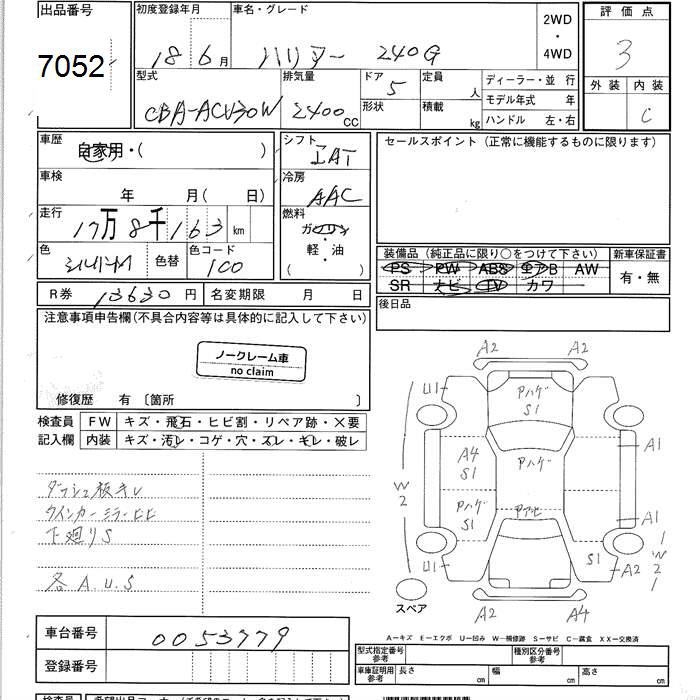 出品番号
7052
初度登録年月
18年6月
車名・グレード
ハリアー 240G
2WD
・
4WD
評価点
3
型式
CBA-ACU30W
排気量
2400cc
ドア
5
形状
定員
人
積載
kg
ディーラー・並 行
モデル年式 年
ハンドル 左・右
外装
内装
C
車歴
自家用・( )
シフト
IAT
セールスポイント (正常に機能するものに限ります)
車検
年 月( 日)
冷房
AAC
走行
17万8千163km
燃料
ガソリン
・
軽・油
( )
色
シルバーM
色替
色コード
100
装備品 (純正品に限り○をつけて下さい)
PS PW ABS エアB AW
SR ナビ TV カワ
新車保証書
有・無
R券
13630円
名変期限 月 日
後日品
注意事項申告欄(不具合内容等は具体的に記入して下さい)
ノークレーム車
no claim
修復歴 有 〔箇所 〕
検査員
記入欄
FW キズ・飛石・ヒビ割・リペア跡・×要
内装 キズ・汚レ・コゲ・穴・スレ・キレ・破レ
ダッシュ板キレ
ウインカーミラーヒビ
下廻りS
各A.U.S
A2 A2
U1
Pハゲ
S1
A1
A4
S1
Pハゲ
W2
Pハゲ
S1
Pアセ
A1
S1
W2
U1
A2
スペア
A2 A4
A-キズ E-エクボ U-凹み W-補修跡 S-サビ C-腐食 XX-交換済
車台番号
0053779
登録番号
型式指定番号
参考
種別区分番号
参考
車庫証明用
参考
長さ cm
幅 cm
高さ cm